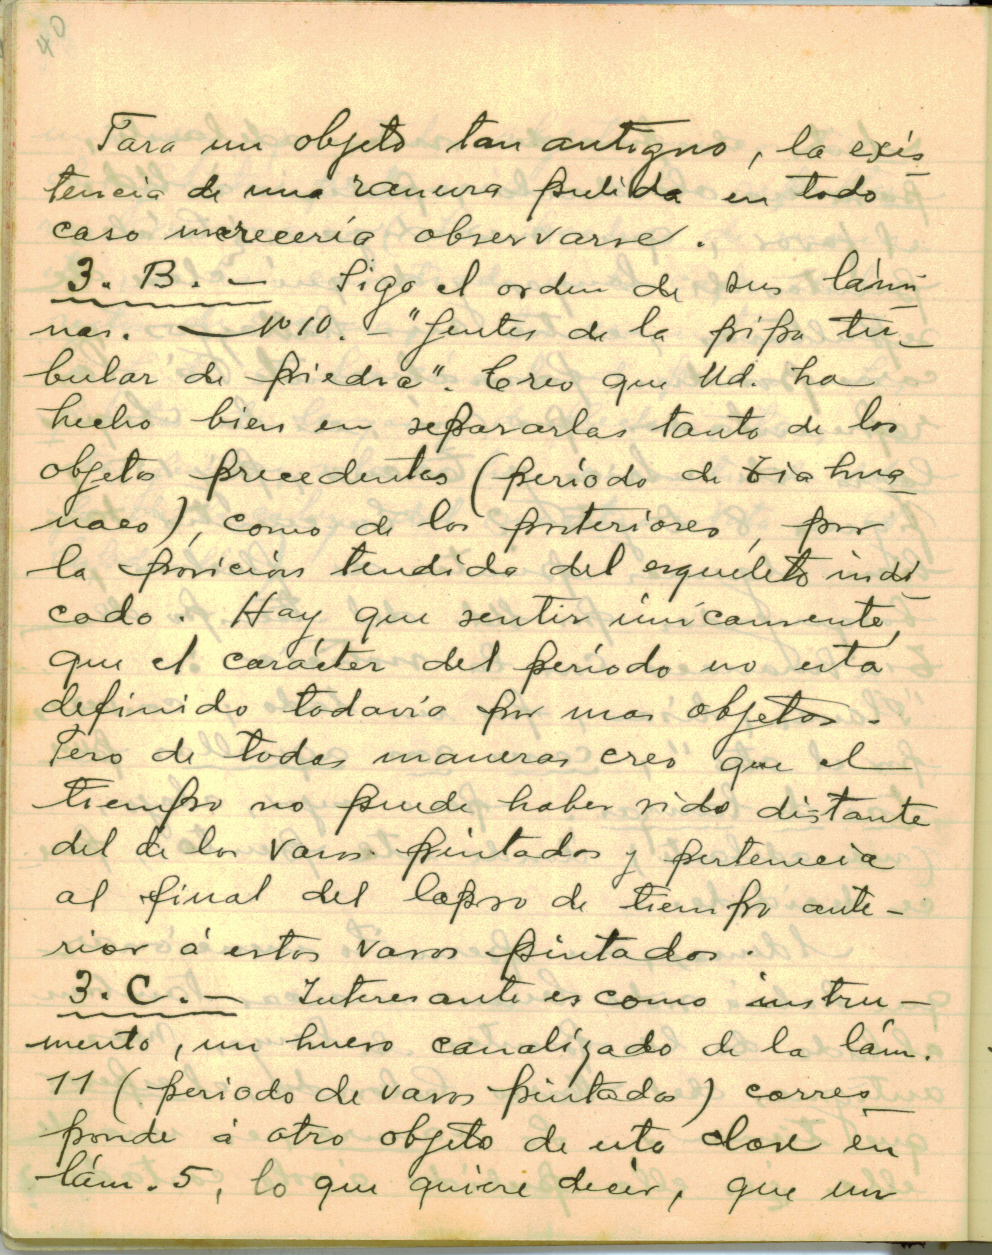 40
Para un objeto tan antiguo, la exis-
tencia de una ranura pulida en todo
caso merecería observarse.
3. B. — Sigo el orden de sus lámi-
nas. — No 10. — "Gentes de la pipa tu-
bular de piedra". Creo que Ud. ha
hecho bien en separarlas tanto de los
objetos precedentes (período de Tiahua-
naco), como de los posteriores, por
la posición tendida del esqueleto indi-
cado. Hay que sentir únicamente,
que el carácter del período no está
definido todavía por mas objetos.
Pero de todas maneras creo que el
tiempo no puede haber sido distante
del de los vasos pintados y pertenecía
al final del lapso de tiempo ante-
rior á estos vasos pintados.
3. C. — Interesante es como instru-
mento, un hueso canalizado de la lám.
11 (periodo de vasos pintados) corres-
ponde á otro objeto de esta clase en
lám. 5, lo que quiere decir, que un